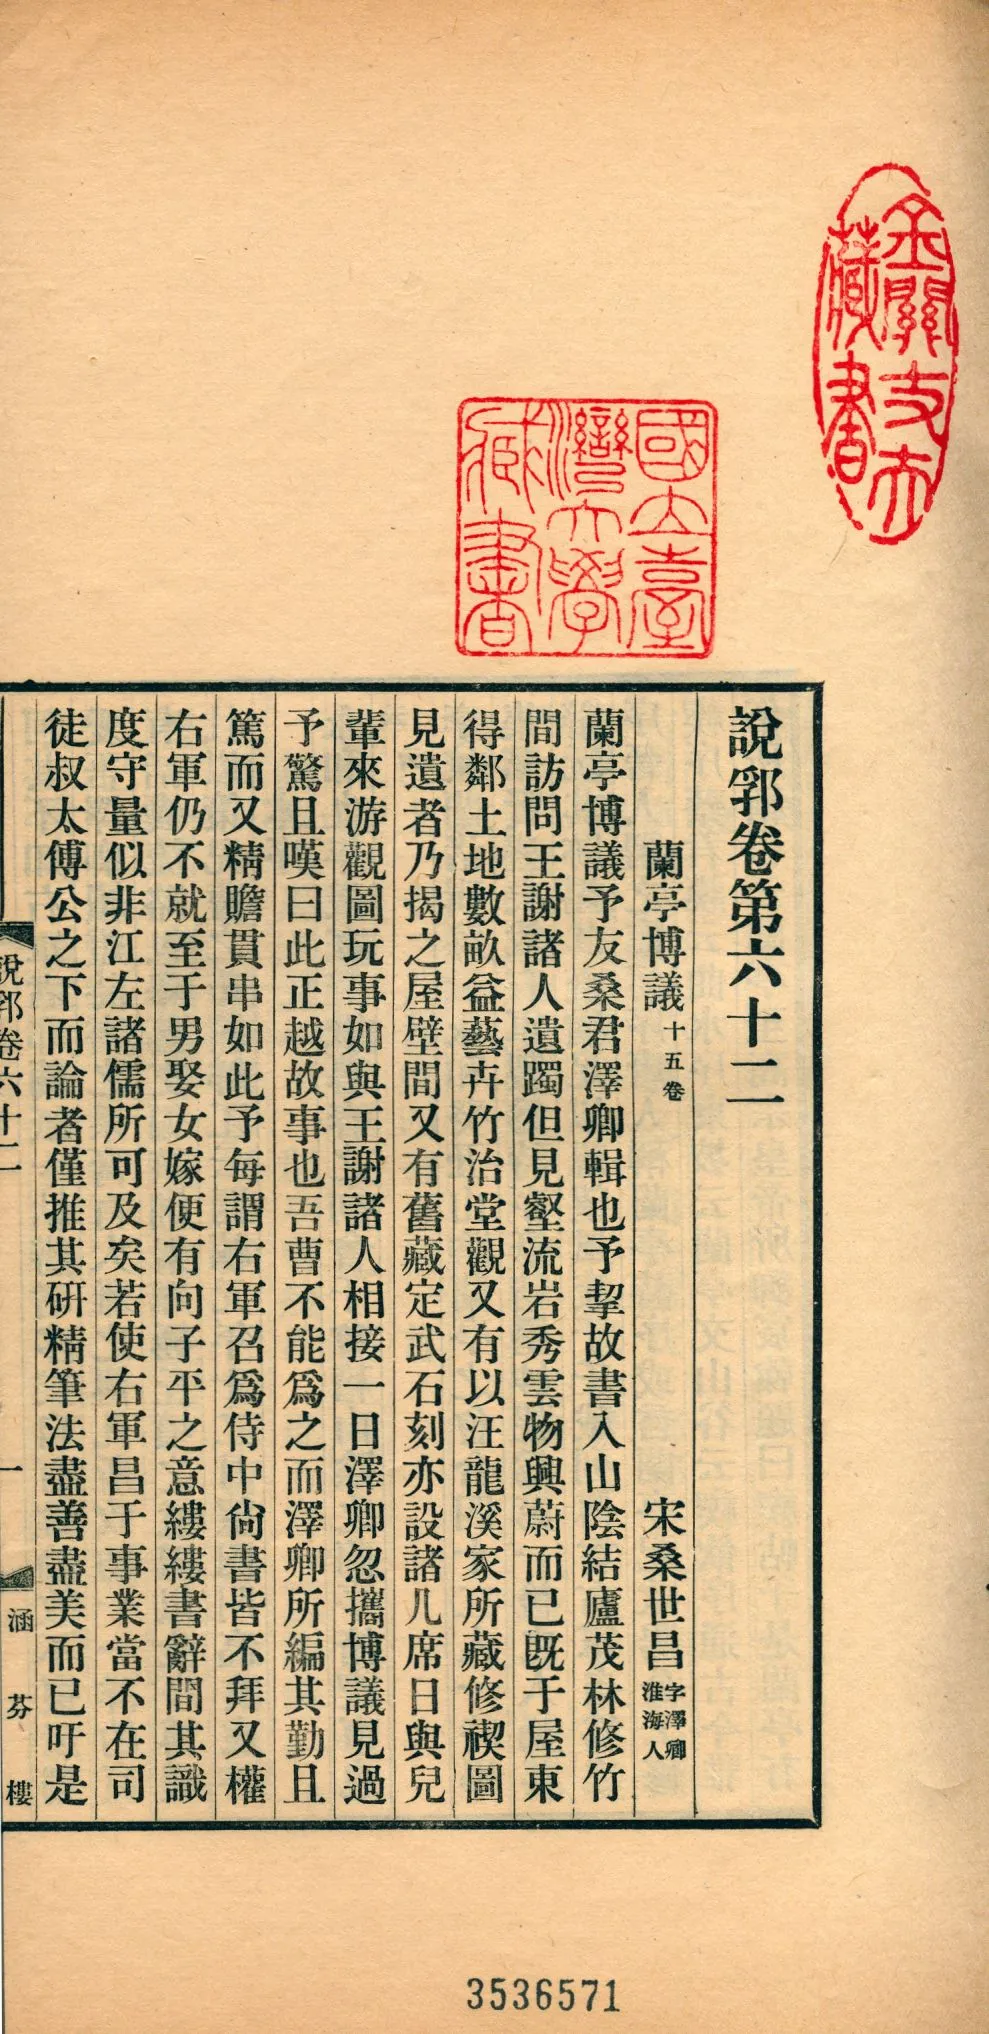 金關丈夫
藏書
國立臺
灣大學
藏書
說郛卷第六十二
蘭亭博議十五卷 宋桑世昌字澤卿淮海人
蘭亭博議予友桑君澤卿輯也予挈故書入山陰結廬茂林修竹
間訪問王謝諸人遺躅但見壑流岩秀雲物興蔚而已既于屋東
得鄰土地數畝益藝卉竹治堂觀又有以汪龍溪家所藏修禊圖
見遺者乃揭之屋壁間又有舊藏定武石刻亦設諸几席日與兒
輩來游觀圖玩事如與王謝諸人相接一日澤卿忽攜博議見過
予驚且嘆曰此正越故事也吾曹不能爲之而澤卿所編其勤且
篤而又精贍貫串如此予每謂右軍召爲侍中尙書皆不拜又權
右軍仍不就至于男娶女嫁便有向子平之意縷縷書辭間其識
度守量似非江左諸儒所可及矣若使右軍昌于事業當不在司
徒叔太傅公之下而論者僅推其研精筆法盡善盡美而已吁是
說郛卷六十二
一
涵芬樓
3536571